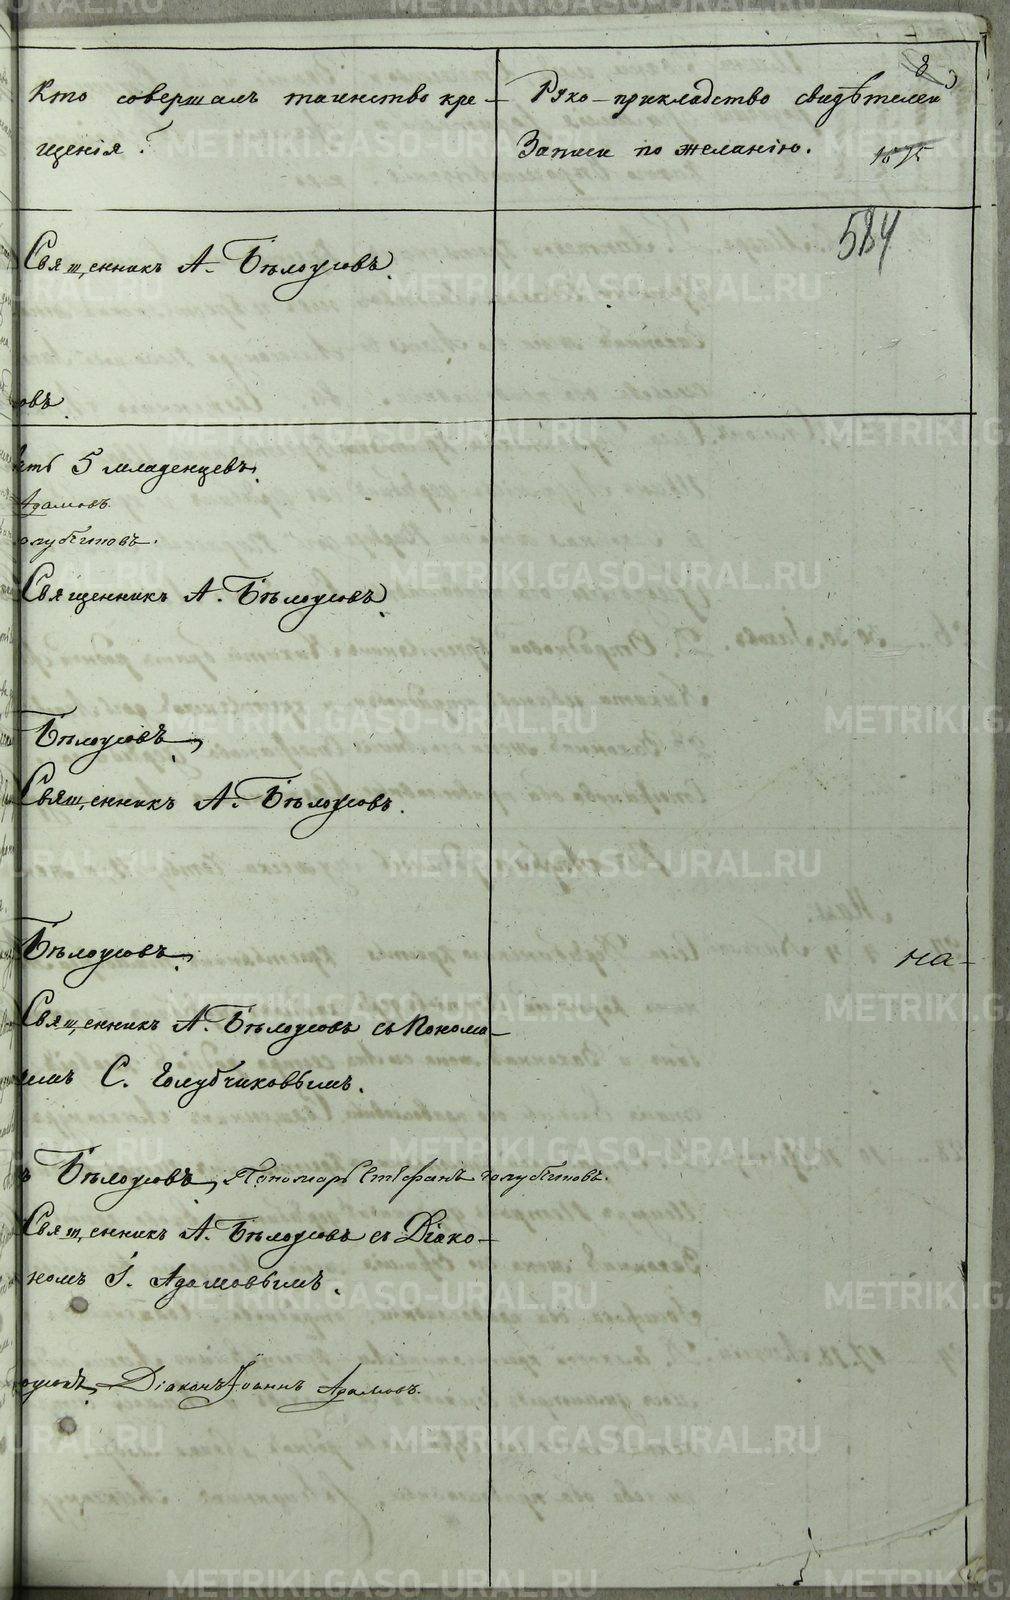 8
Кто совершалъ таинство кре-
щенія?
Руко-прикладство свидѣтелей
Записи по желанію.
584
Священникъ А. Бѣлоусовъ.
овъ.
5 младенцевъ.
Адамовъ.
Священникъ А. Бѣлоусовъ.
Бѣлоусовъ,
Священникъ А. Бѣлоусовъ.
Бѣлоусовъ,
на-
Священникъ А. Бѣлоусовъ съ Понома-
емъ С. Голубчиковымъ.
ъ Бѣлоусовъ, Пономарь Стефанъ
Священникъ А. Бѣлоусовъ съ Діако-
номъ І. Адамовымъ.
оусовъ, Діаконъ Іоаннъ Адамовъ.
METRIKI.GASO-URAL.RU